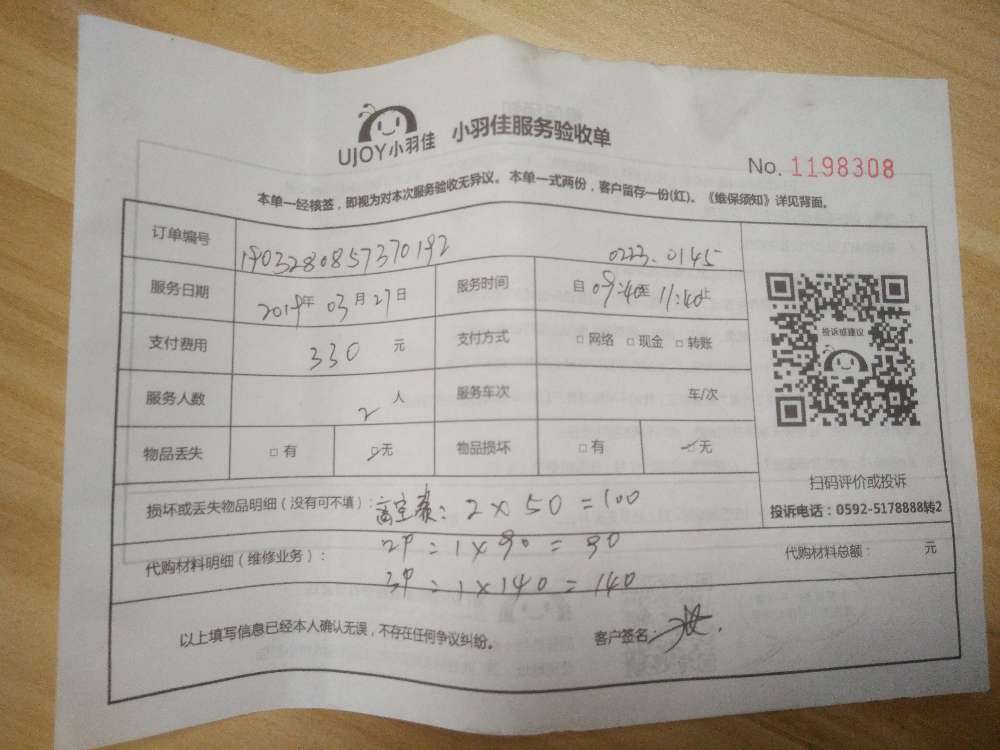 UJOY小羽佳 小羽佳服务验收单
No. 1198308
本单一经核签，即视为对本次服务验收无异议。本单一式两份，客户留存一份(红)、《维保须知》详见背面。
订单编号 1903280857370192 0223.0145
服务日期 2019年 03月27日 服务时间 自09:40至11:40止
支付费用 330 元 支付方式 □网络 □现金 □转账
投诉或建议
服务人数 2 人 服务车次 车/次
物品丢失 □有 ☑无 物品损坏 □有 ☑无
扫码评价或投诉
投诉电话：0592-5178888转2
损坏或丢失物品明细（没有可不填）：高空费：2×50=100
2P=1×90=90
代购材料明细（维修业务）： 代购材料总额： 元
3P=1×140=140
以上填写信息已经本人确认无误，不存在任何争议纠纷。 客户签名：